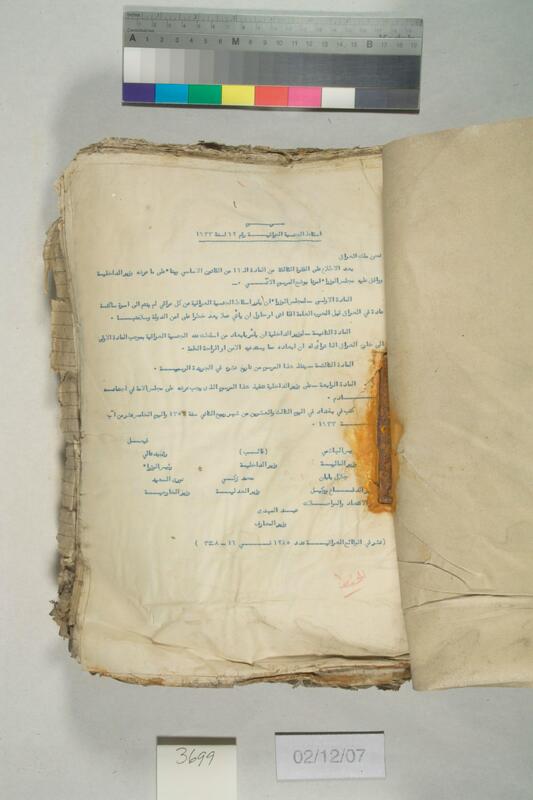 مرسوم
اسقاط الجنسية العراقية رقم ٦٢ لسنة ١٩٣٣
نحن ملك العراق
بعد الاطلاع على الفقرة الثالثة من المادة الـ ٢٦ من القانون الاساسي وبناء على ما عرضه وزير الداخلية
ووافق عليه مجلس الوزراء امرنا بوضع المرسوم الآتي :-
المادة الاولى - لمجلس الوزراء ان يقرر اسقاط الجنسية العراقية عن كل عراقي لم ينتم الى اسرة ساكنة
عادة في العراق قبل الحرب العامة اذا اتى او حاول ان يأتي عملا يعد خطرا على امن الدولة وسلامتها .
المادة الثانية - لوزير الداخلية ان يأمر بابعاد من اسقطت عنه الجنسية العراقية بموجب المادة الاولى
الى خارج العراق اذا تراءى له ان ابعاده مما يستدعيه الامن او الراحة العامة .
المادة الثالثة - ينفذ هذا المرسوم من تاريخ نشره في الجريدة الرسمية .
المادة الرابعة - على وزير الداخلية تنفيذ هذا المرسوم الذي يجب عرضه على مجلس الامة في اجتماعه
القادم .
كتب في بغداد في اليوم الثالث والعشرين من شهر ربيع الثاني سنة ١٣٥٢ واليوم الخامس عشر من آب
سنة ١٩٣٣ .
فيصل
ياسين الهاشمي (غائب) رشيد عالي
وزير المالية وزير الداخلية رئيس الوزراء
جلال بابان محمد زكي نوري السعيد
وزير الدفاع ووكيل وزير العدلية وزير الخارجية
وزير الاقتصاد والمواصلات
عبد المهدي
وزير المعارف
( نشر في الوقائع العراقية عدد ١٢٨٥ في ١٦ - ٨ - ٣٣ )
3699
02/12/07